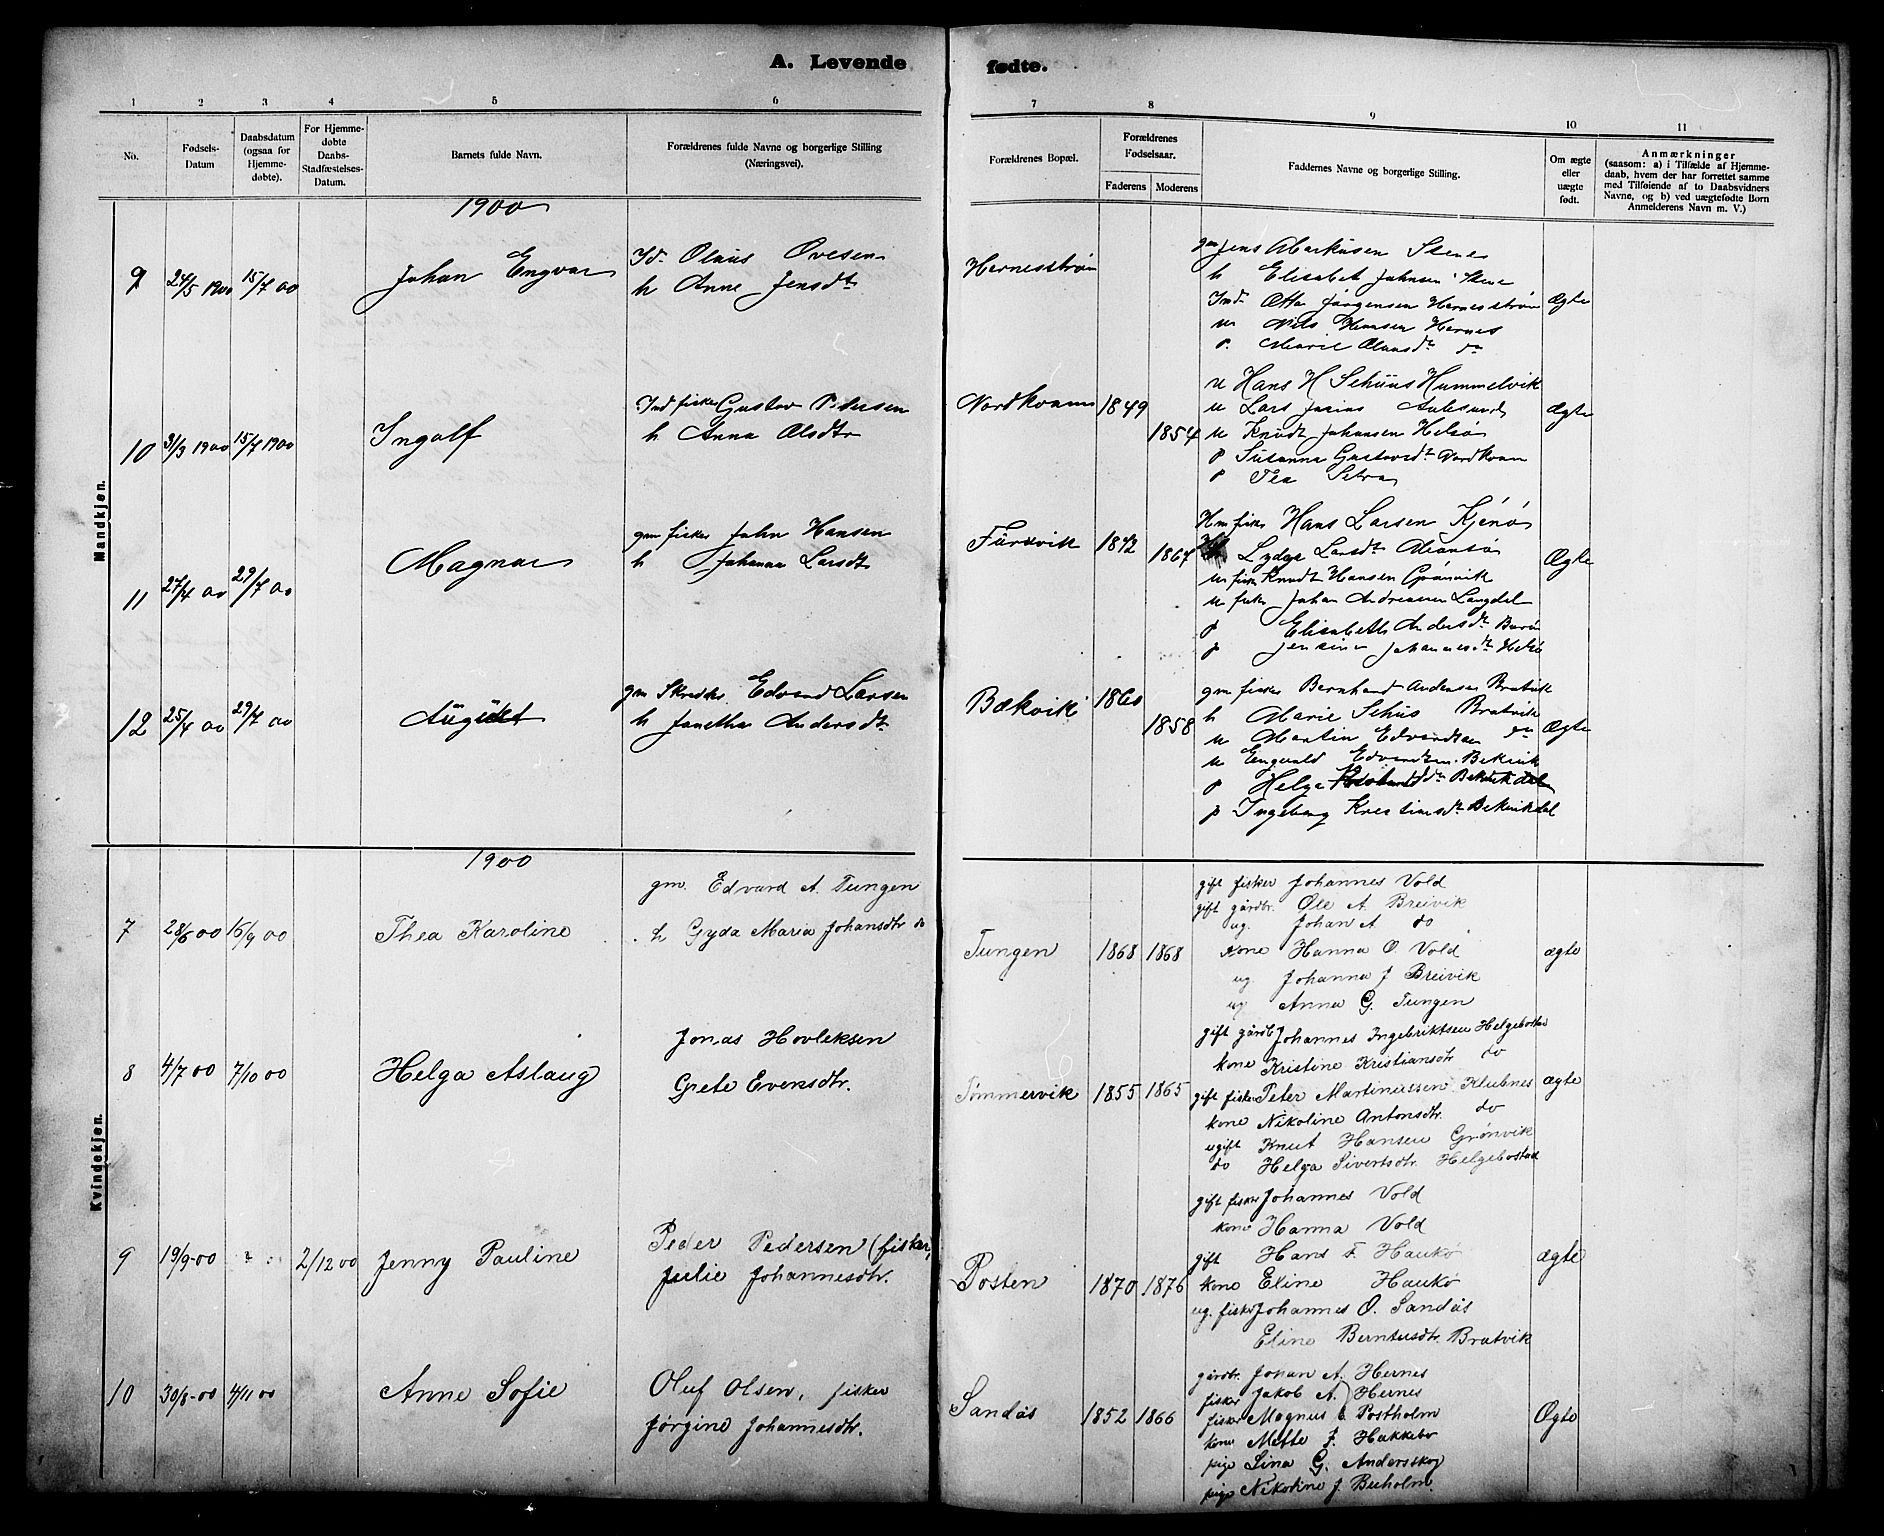 A. Levende fødte.
1 2 3 4 5 6 7 8 9 10 11
No.
Fødsels-Datum
Daabsdatum (ogsaa for Hjemme-døbte).
For Hjemme-døbte Daabs-Stadfæstelses-Datum.
Barnets fulde Navn.
Forældrenes fulde Navne og borgerlige Stilling (Næringsvei).
Forældrenes Bopæl.
Forældrenes Fødselsaar.
Faderens Moderens
Faddernes Navne og borgerlige Stilling.
Om ægte eller uægte født.
Anmærkninger
(saasom: a) i Tilfælde af Hjemme-
daab, hvem der har forrettet samme
med Tilføiende af to Daabsvidners
Navne, og b) ved uægtefødte Børn
Anmelderens Navn m. V.)
Mandkjøn.
1900
9 24/5 1900 15/7 00 Johan Engvar
Olaus Ovesen
h Anne Jensdt
Hernesstrøm
gm Jens Markusen Stene
h Elisabet Johnsen Stene
Ind. Otto Jørgensen Hernesstrøm
u Nils Hansen Hernes
p. Marie Olausdt do
Ægte
10 31/3 1900 15/7 1900 Ingolf
Ind fisker Gustav Pedersen
h Anna Olsdtr
Nordkvam 1849 1854
u Hans H Schüus Hummelvik
u Lars Aalesund
u Knudt Johansen Helsø
p Susanna Gustavsdt Nordkvam
p Tea Setra
Ægte
11 27/4 00 29/7 00 Magnar
gm fisker John Hansen
h Johanna Larsdt
Furuvik 1872 1867
gm fisker Hans Larsen Kjønø
Lydya Larsdt
u fisker Knudt Hansen Grønvik
u fisker Johan Andreasen Langdel
p Elisabeth Andersdt
p Jensine Johannesdt Helsø
Ægte
12 25/4 00 29/7 00 August
gm Edvard Larsen
h Janetha Andersdt
Bækvik 1860 1858
gm fisker Bernhard Andersen Bratvik
h Marie Schüs Bratvik
u Martin Edvardsen do
u Engvald Edvardsen Bekvik
p Helga
p Ingeborg Kristiansdt Bekvikdal
Ægte
Kvindekjøn.
1900
7 28/6 00 16/9 00 Thea Karoline
gm. Edvard A. Tungen
h Gyda Maria Johansdtr do
Tungen 1868 1868
gift fisker Johannes Vold
gift gårdbr. Ole A. Breivik
ug. Johan A do
kone Hanna O. Vold
ug. Johanna J Breivik
ug Anna G. Tungen
ægte
8 4/7 00 7/10 00 Helga Aslaug
Jonas Hovleksen
Grete Evensdtr.
Tømmervik 1855 1865
gift gårdb Johannes Ingebriktsen Helgebostad
kone Kristine Kristiansdtr do
gift fisker Peter Martinussen Klubnes
kone Nikoline Antonsdtr. do
ugift Knut Hansen Grønvik
do Helga Sivertsdtr. Helgebostad
ægte
9 19/9-00 2/12 00 Jenny Pauline
Peder Pedersen (fisker)
Julie Johannesdtr.
Posten 1870 1876
gift fisker Johannes Vold
kone Hanna Vold
gift Hans F. Haukø
kone Eline Haukø
ug. fisker Johannes O. Sandås
Eline Berntusdtr. Bratvik
ægte
10 30/8-00 4/11 00 Anne Sofie
Oluf Olsen, fisker
Jørgine Johannesdtr.
Sandås 1852 1866
gårdbr. Johan A. Hernes
fisker Jakob A. Hernes
fisker Magnus Postholm
kone Mette J. Hakkebo
pige Lina G. Andersskog
pige Nikoline J. Buholm.
Øgte